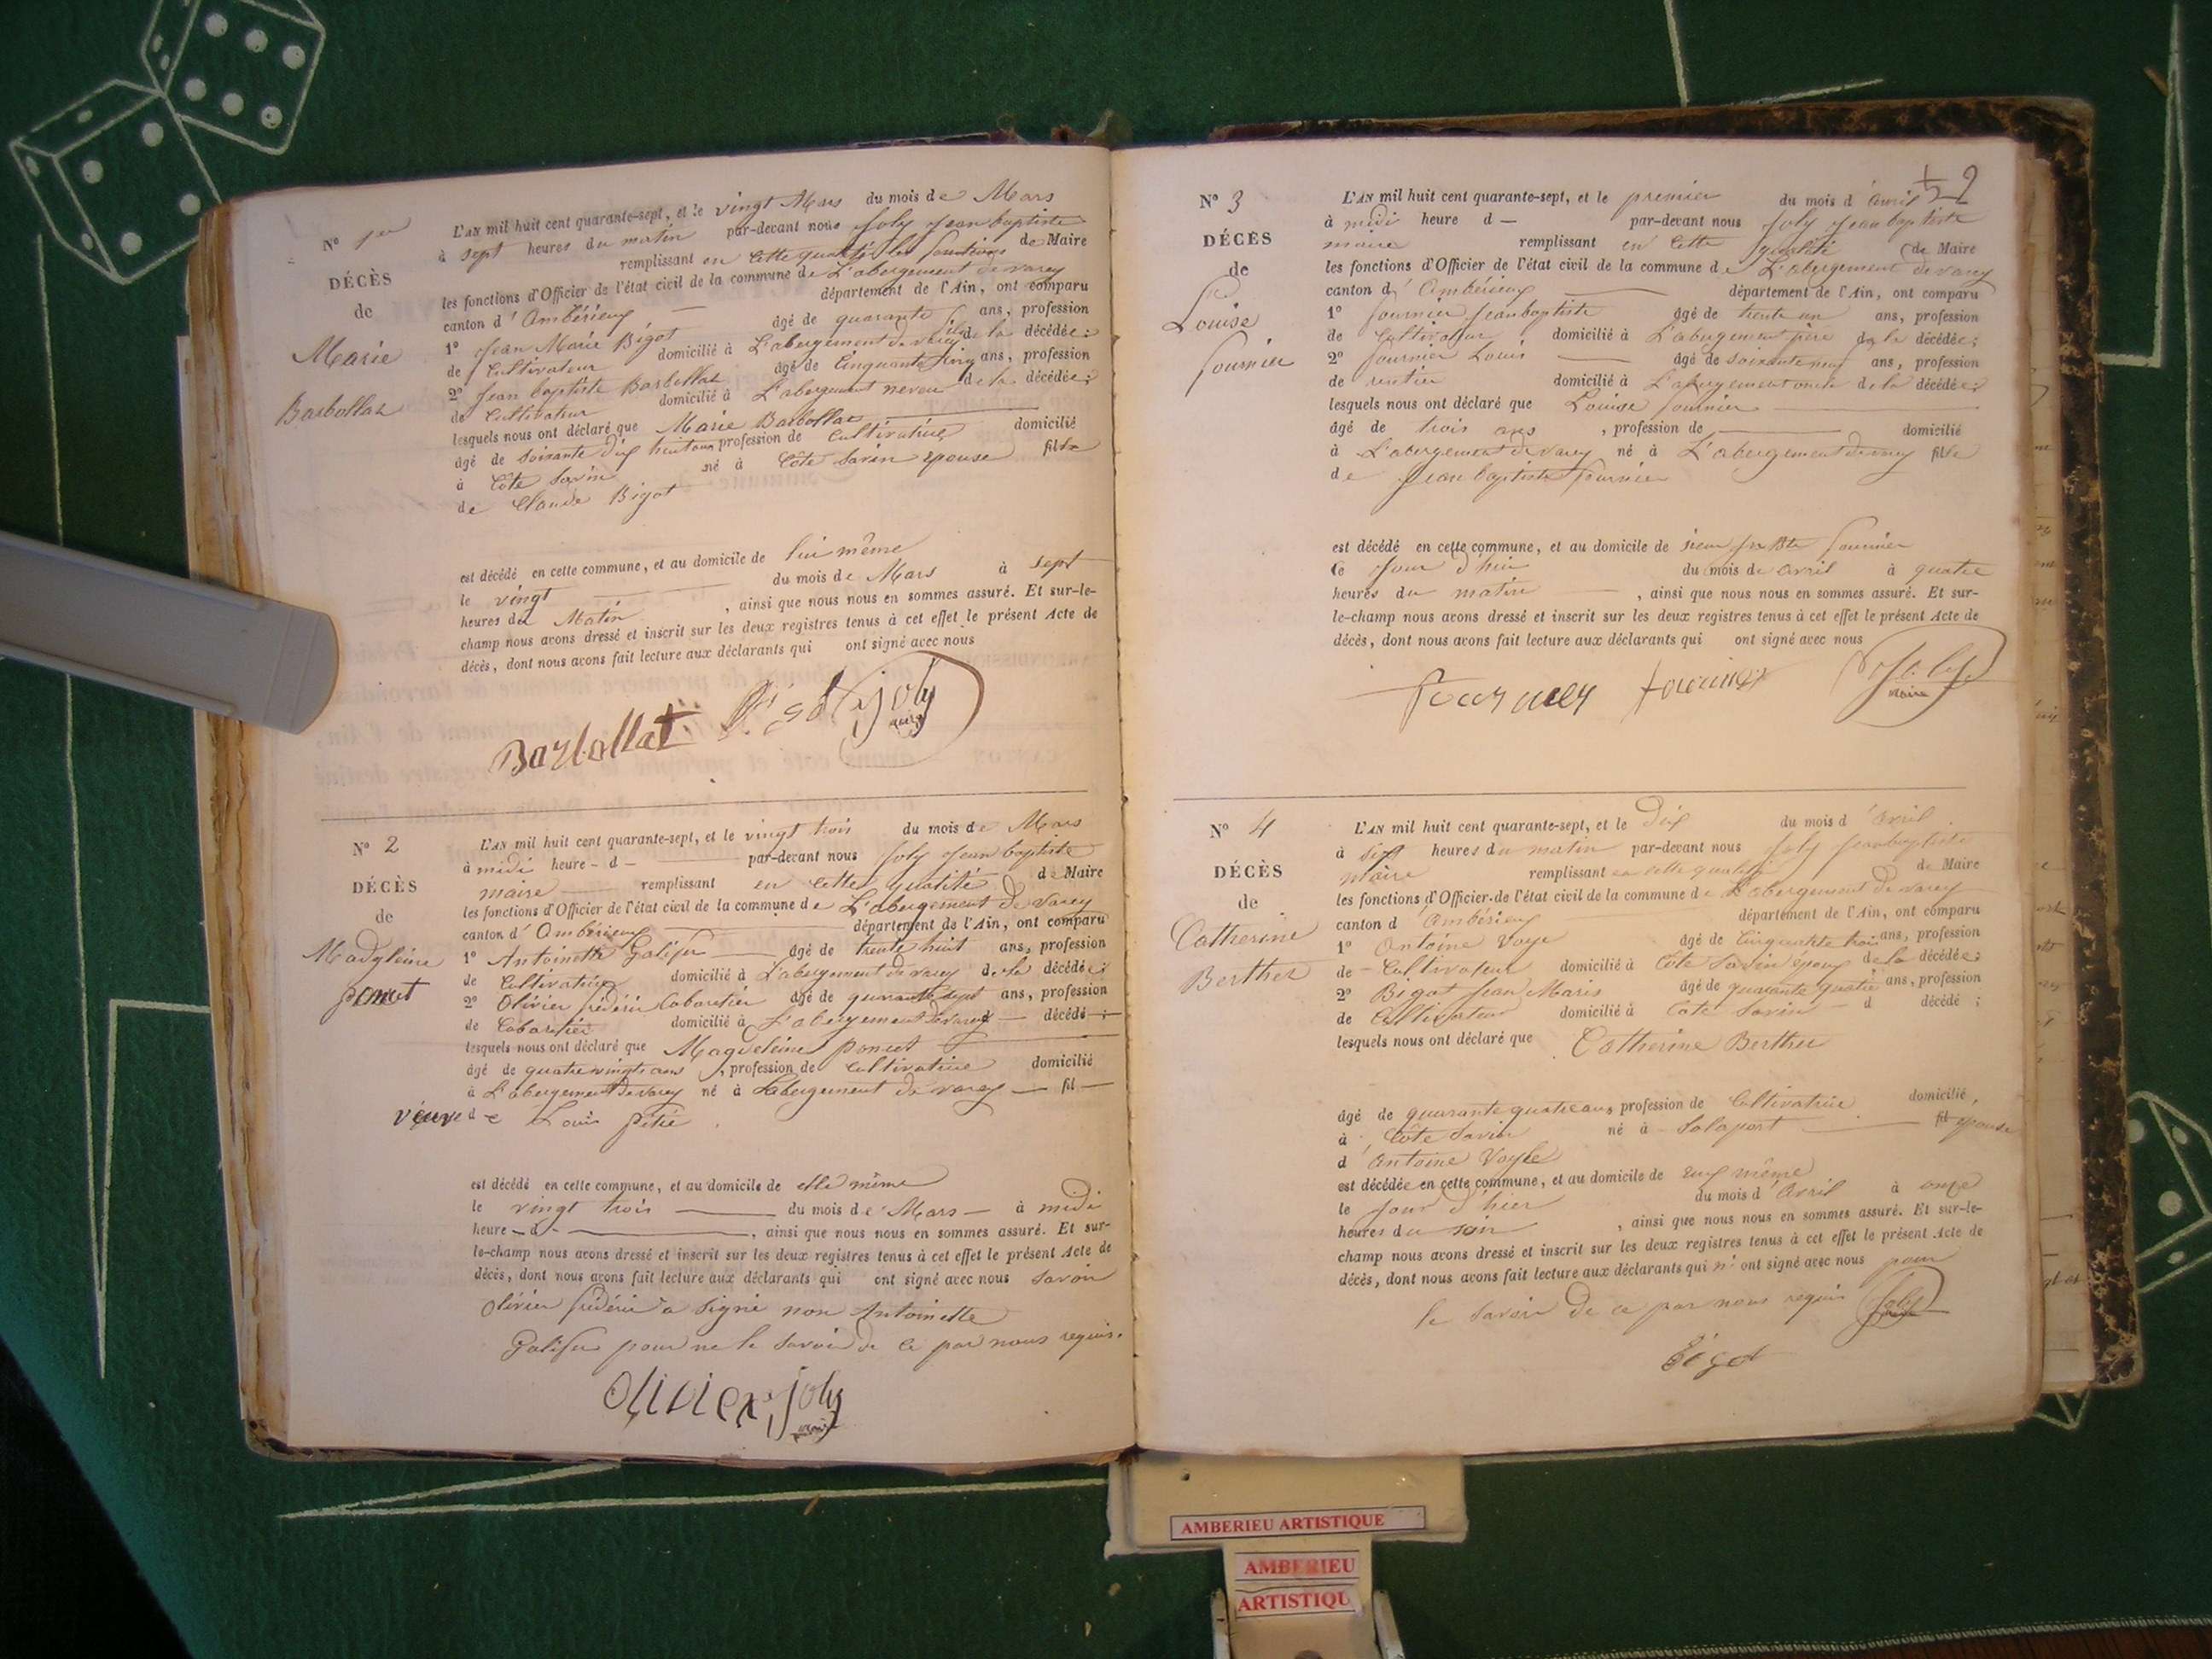 N° 1er
DÉCÈS
de
Marie
Barbollat
L'AN mil huit cent quarante-sept, et le vingt Mars du mois de Mars
à sept heures du matin par-devant nous Joly Jean baptiste
remplissant en cette qualité les fonctions de Maire
les fonctions d'Officier de l'état civil de la commune de L'abergement de varey
canton d'Ambérieux département de l'Ain, ont comparu
1° Jean Marie Bigot âgé de quarante ans, profession
de Cultivateur domicilié à L'abergement de varey de la décédée;
2° Jean baptiste Barbollat âgé de Cinquante cinq ans, profession
de Cultivateur domicilié à L'abergement neveu de la décédée;
lesquels nous ont déclaré que Marie Barbollat
âgé de soixante dix huit ans profession de Cultivatrice domicilié
à Côte Savin né à Côte Savin épouse fille
de Claude Bigot
est décédé en cette commune, et au domicile de lui même
le vingt du mois de Mars à sept
heures du Matin, ainsi que nous nous en sommes assuré. Et sur-le-
champ nous avons dressé et inscrit sur les deux registres tenus à cet effet le présent Acte de
décès, dont nous avons fait lecture aux déclarants qui ont signé avec nous
Barbollat Bigot joly
maire
N° 2
DÉCÈS
de
Madgleine
poncet
L'AN mil huit cent quarante-sept, et le vingt trois du mois de Mars
à midi heure - d - par-devant nous Joly Jean baptiste
maire remplissant en cette qualité de Maire
les fonctions d'Officier de l'état civil de la commune de L'abergement de varey
canton d'Ambérieux département de l'Ain, ont comparu
1° Antoinette Galifer âgé de trente huit ans, profession
de Cultivatrice domicilié à L'abergement de varey de la décédée;
2° Olivier frédéric Cabaretier âgé de quarante sept ans, profession
de Cabaretier domicilié à L'abergement de varey décédé;
lesquels nous ont déclaré que Magdeleine poncet
âgé de quatre vingts ans, profession de Cultivatrice domicilié
à L'abergement de varey né à L'abergement de varey fil
veuve de Louis
est décédé en cette commune, et au domicile de elle même
le vingt trois du mois de Mars à midi
heure - d -, ainsi que nous nous en sommes assuré. Et sur-
le-champ nous avons dressé et inscrit sur les deux registres tenus à cet effet le présent Acte de
décès, dont nous avons fait lecture aux déclarants qui ont signé avec nous savoir
Olivier frédéric a signé non Antoinette
Galifer pour ne le savoir de ce par nous requis.
Olivier joly
maire
N° 3
DÉCÈS
de
Louise
fournier
2
L'AN mil huit cent quarante-sept, et le premier du mois d'avril
à midi heure d — par-devant nous Joly Jean baptiste
maire remplissant en cette qualité de Maire
les fonctions d'Officier de l'état civil de la commune de L'abergement de varey
canton d'Ambérieux département de l'Ain, ont comparu
1° fournier Jean baptiste âgé de trente un ans, profession
de Cultivateur domicilié à L'abergement père de la décédée;
2° fournier Louis âgé de soixante neuf ans, profession
de rentier domicilié à L'abergement oncle de la décédée;
lesquels nous ont déclaré que Louise fournier
âgé de trois ans, profession de domicilié
à L'abergement de varey né à L'abergement de varey fille
de Jean baptiste fournier
est décédé en cette commune, et au domicile de sieur Jn Bte fournier
le jour d'hui du mois de avril à quatre
heures du matin, ainsi que nous nous en sommes assuré. Et sur-
le-champ nous avons dressé et inscrit sur les deux registres tenus à cet effet le présent Acte de
décès, dont nous avons fait lecture aux déclarants qui ont signé avec nous
fournier fournier Joly
maire
N° 4
DÉCÈS
de
Catherine
Berthet
L'AN mil huit cent quarante-sept, et le Dix du mois d'avril
à sept heures du matin par-devant nous Joly Jean baptiste
maire remplissant en cette qualité de Maire
les fonctions d'Officier de l'état civil de la commune de L'abergement de varey
canton d'Ambérieux département de l'Ain, ont comparu
1° Antoine Voyle âgé de Cinquante trois ans, profession
de Cultivateur domicilié à Côte Savin époux de la décédée;
2° Bigot Jean Marie âgé de quarante quatre ans, profession
de Cultivateur domicilié à Côte Savin d décédé;
lesquels nous ont déclaré que Catherine Berthet
âgé de quarante quatre ans profession de Cultivatrice domicilié,
à Côte Savin né à Salaport fil épouse
d'Antoine Voyle
est décédée en cette commune, et au domicile de eux même
le jour d'hier du mois d'avril à onze
heures du soir, ainsi que nous nous en sommes assuré. Et sur-le-
champ nous avons dressé et inscrit sur les deux registres tenus à cet effet le présent Acte de
décès, dont nous avons fait lecture aux déclarants qui n'ont signé avec nous pour
le savoir de ce par nous requis Joly
Bigot
AMBERIEU ARTISTIQUE
AMBERIEU
ARTISTIQU